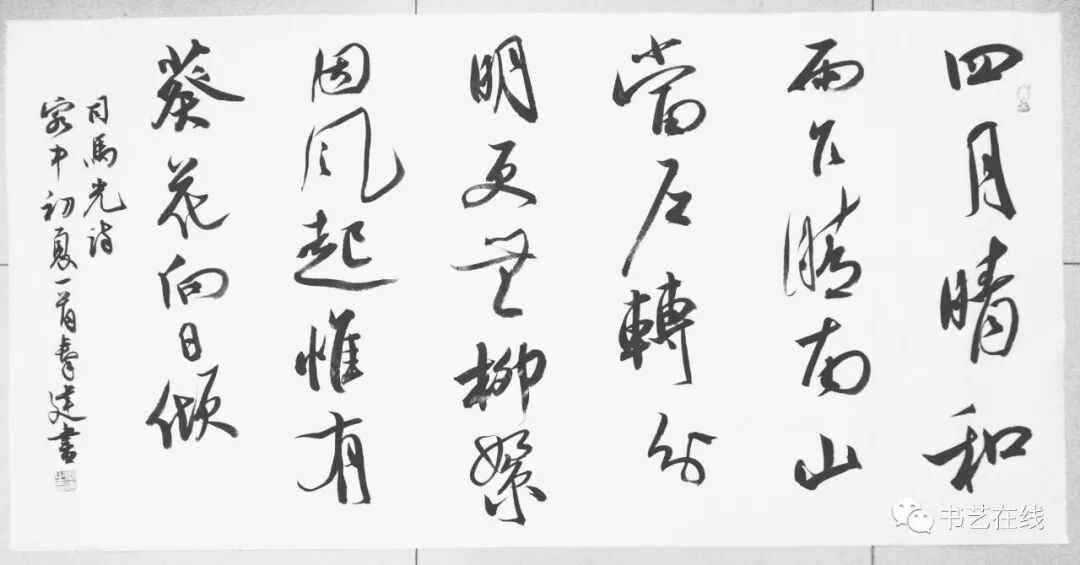 四月晴和
雨乍晴南山
當戶轉分
明更無柳絮
因風起惟有
葵花向日傾
司馬光詩
客中初夏一首建書
书艺在线